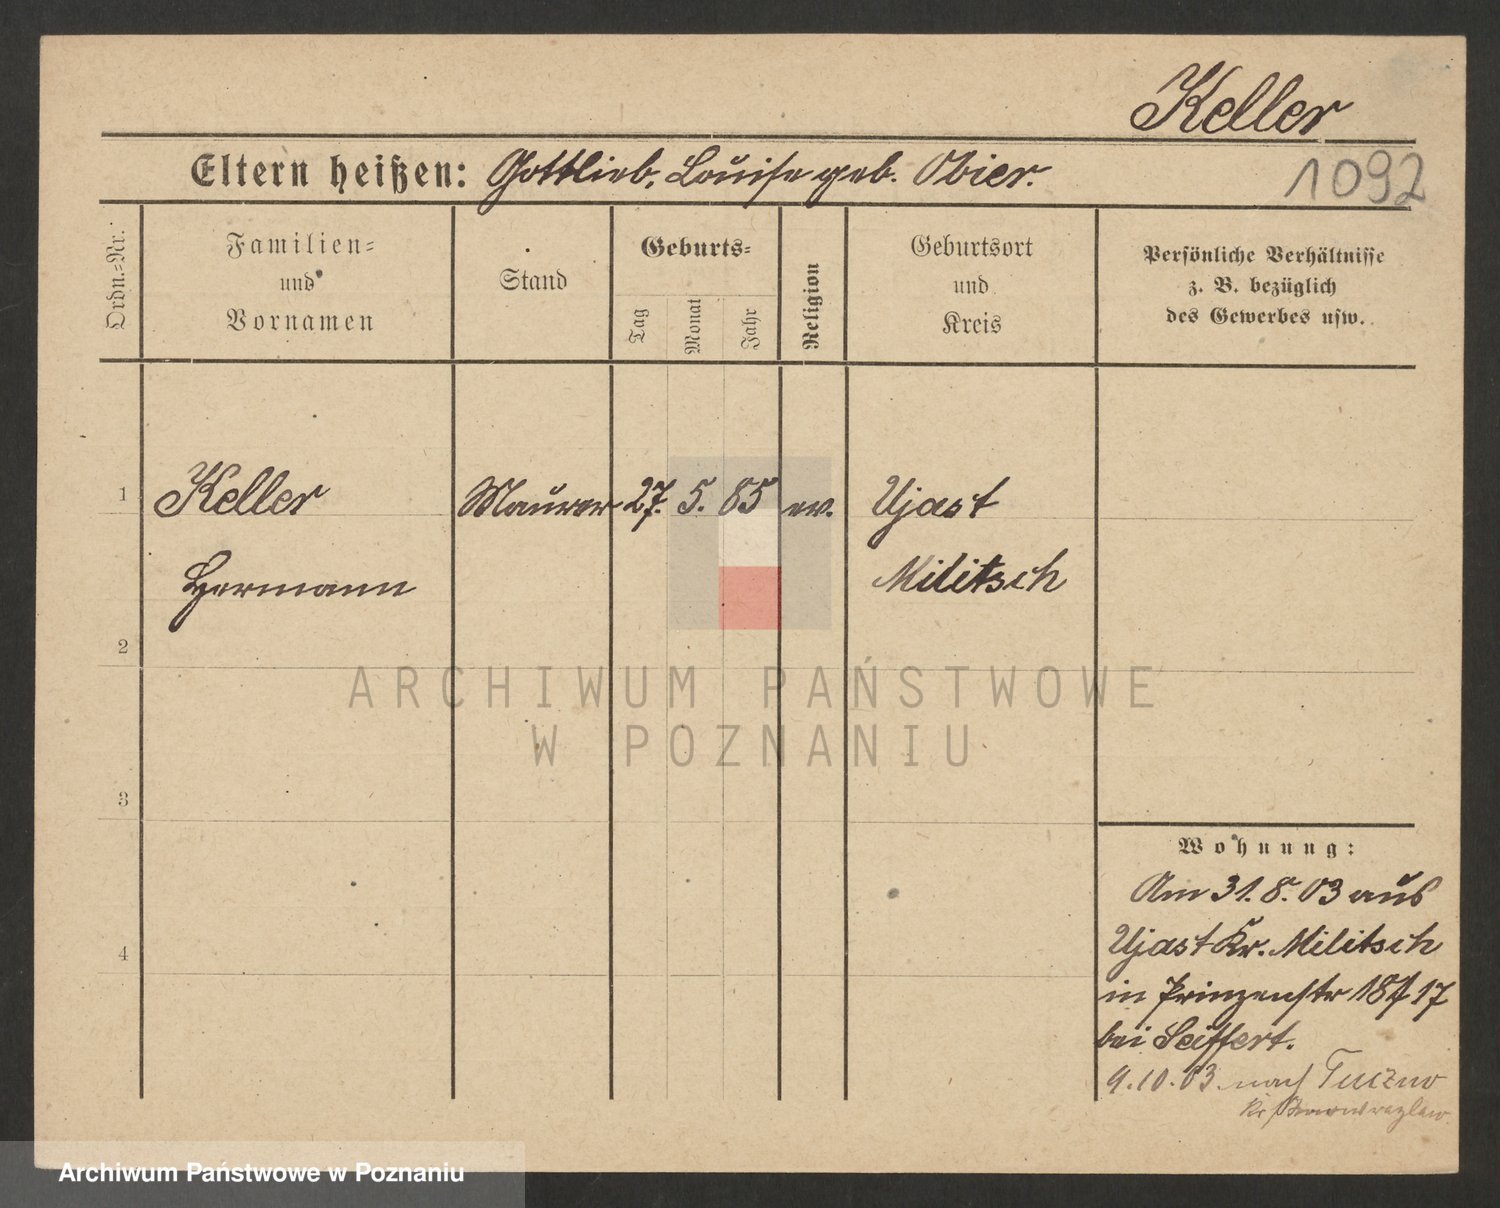 Keller
Eltern heißen: Gottlieb, Louise geb. Obier.
1092
Ordn.-Nr.:
Familien-
und
Vornamen
Stand
Geburts-
Tag
Monat
Jahr
Religion
Geburtsort
und
Kreis
Persönliche Verhältnisse
z. B. bezüglich
des Gewerbes usw.
1 Keller Maurer 27. 5. 85 ev. Ujast
Hermann Militsch
2
ARCHIWUM PAŃSTWOWE
W POZNANIU
3
Wohnung:
Am 31.8.03 aus
4
Ujast Kr. Militsch
in Prinzenstr 17
bei Seiffert.
9.10.03. nach Tuczno
Kr.
Archiwum Państwowe w Poznaniu